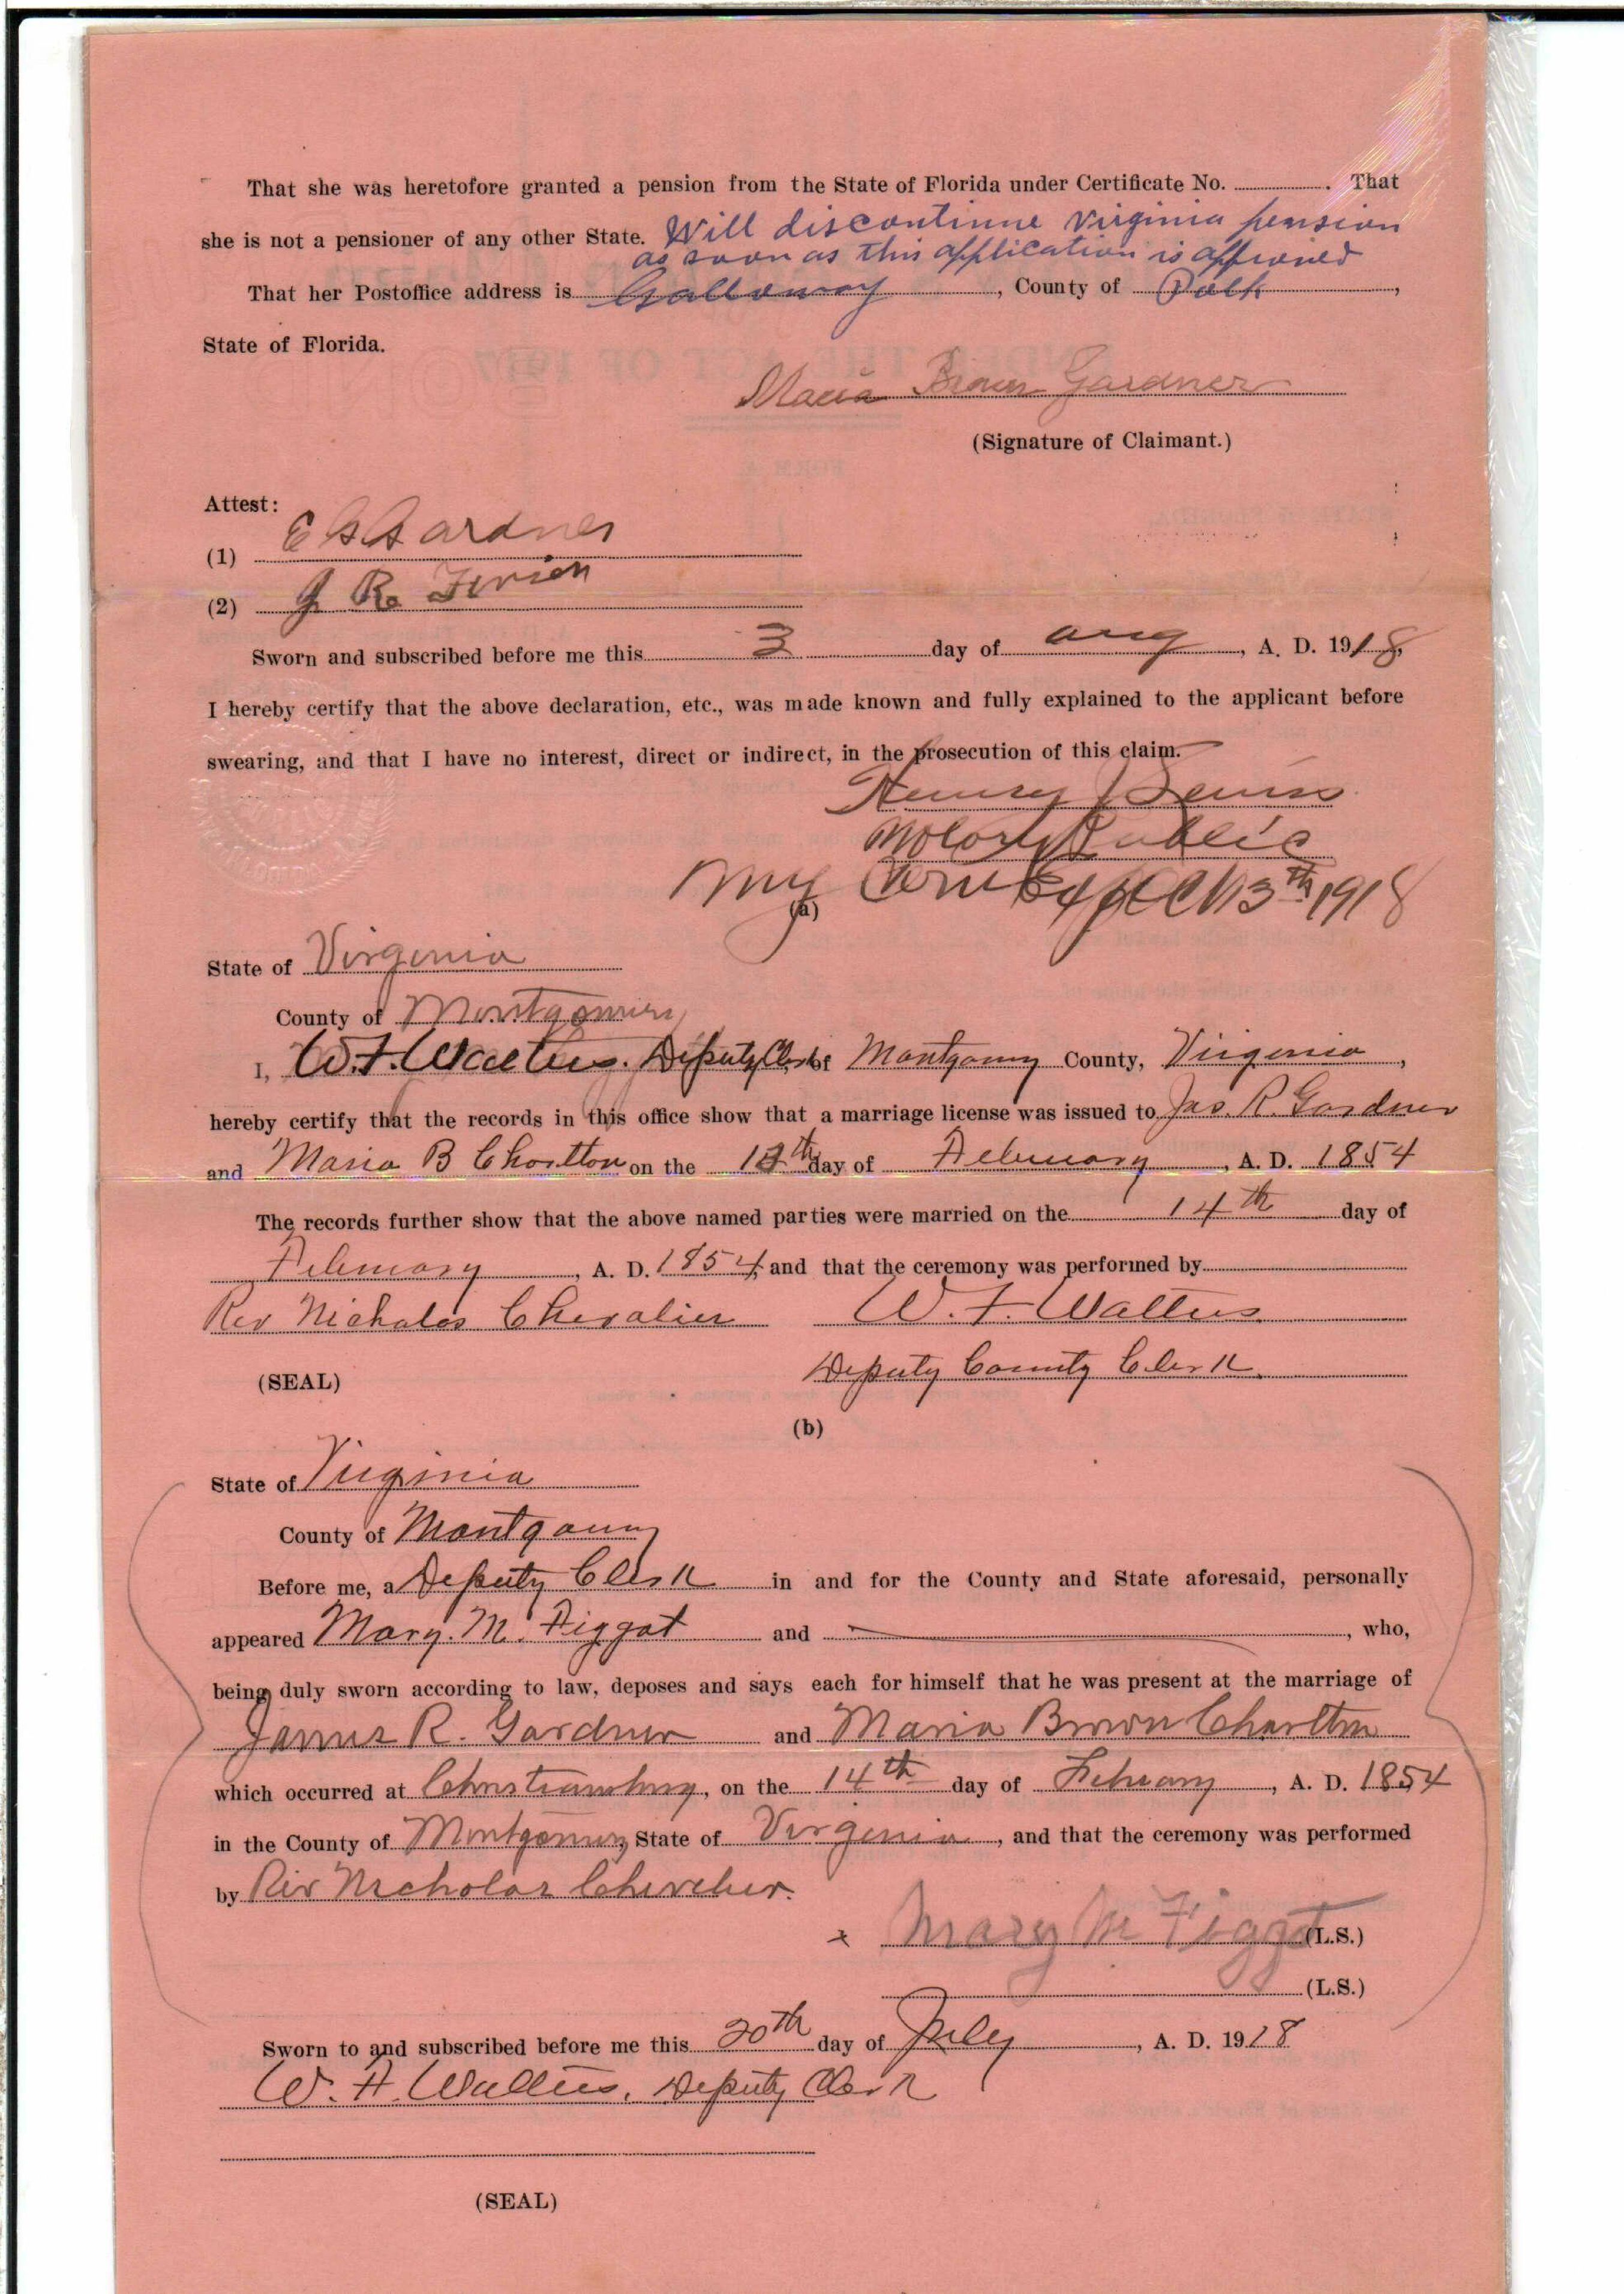 That she was heretofore granted a pension from the State of Florida under Certificate No. . That
she is not a pensioner of any other State. Will discontinue Virginia pension
as soon as this application is approved
That her Postoffice address is Galloway, County of Polk,
State of Florida.
Maria Brown Gardner
(Signature of Claimant.)
Attest:
(1) E G Gardner
(2) J R
Sworn and subscribed before me this 3 day of Aug, A. D. 1918,
I hereby certify that the above declaration, etc., was made known and fully explained to the applicant before
swearing, and that I have no interest, direct or indirect, in the prosecution of this claim.
Henry
Notary Public
My Com 13th 1918
(a)
State of Virginia
County of Montgomery
I, W. F. Walters. Deputy Clerk of Montgomery County, Virginia,
hereby certify that the records in this office show that a marriage license was issued to Jas. R. Gardner
and Maria B Charlton on the day of February, A. D. 1854
The records further show that the above named parties were married on the 14th day of
February, A. D. 1854, and that the ceremony was performed by
Rev Nicholas Chevalier W. F. Walters
Deputy County Clerk.
(SEAL)
(b)
State of Virginia
County of Montgomery
Before me, a Deputy Clerk in and for the County and State aforesaid, personally
appeared Mary. M. Figgat and , who,
being duly sworn according to law, deposes and says each for himself that he was present at the marriage of
James R. Gardner and Maria Brown Charlton
which occurred at Christiansburg, on the 14th day of February, A. D. 1854
in the County of Montgomery, State of Virginia, and that the ceremony was performed
by Rev Nicholas Chevalier.
x Mary M Figgat (L.S.)
(L.S.)
Sworn to and subscribed before me this 20th day of July, A. D. 1918
W. F. Walters, Deputy Clerk
(SEAL)